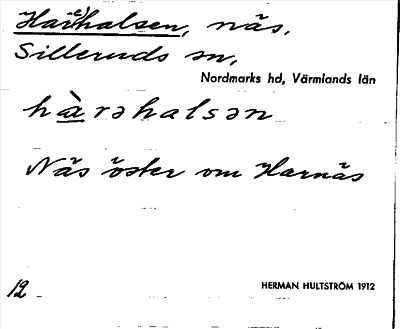 Har(e)halsen, näs,
Silleruds sn,
Nordmarks hd, Värmlands län
hàrəhalsən
Näs öster om Harnäs
HERMAN HULTSTRÖM 1912
12